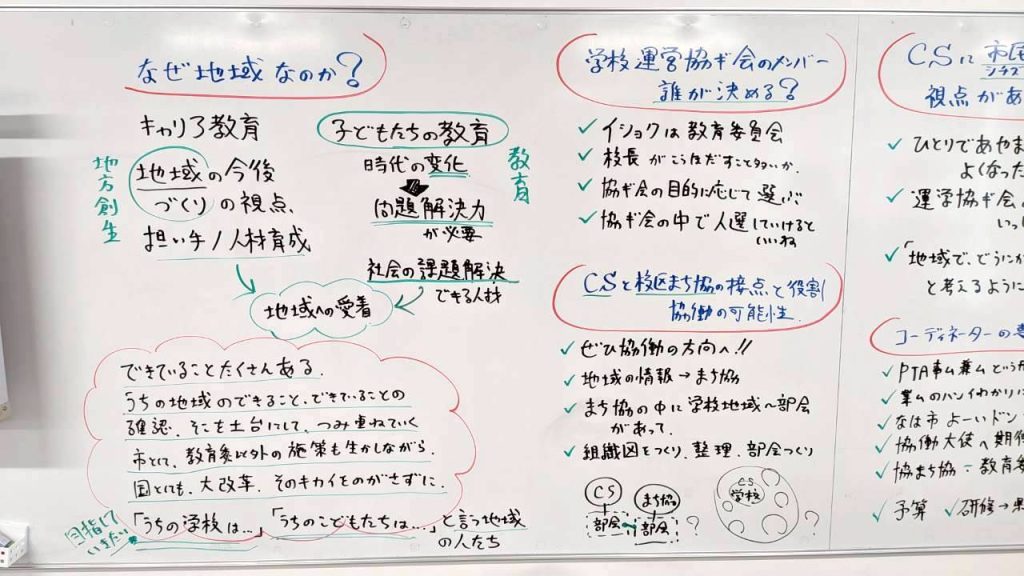 なぜ地域なのか?
キャリア教育
地域の今後
づくりの視点、
担い手/人材育成
地方創生
子どもたちの教育
時代の変化
問題解決力
が必要
社会の課題解決
できる人材
教育
地域への愛着
できていることたくさんある.
うちの地域のできること、できていることの
確認、そこを土台にして、つみ重ねていく
市として、教育委以外の施策も生かしながら.
国としても、大改革、そのキカイをのがさずに.
目指して
いきたい
「うちの学校は…」「うちのこどもたちは…」と言う地域
の人たち
学校運営協ギ会のメンバー
誰が決める?
✓ イショクは教育委員会
✓ 校長が
✓ 協ギ会の目的に応じて選ぶ
✓ 協ギ会の中で人選していけると
いいね
CSと校区まち協の接点と役割
協働の可能性.
✓ ぜひ協働の方向へ!!
✓ 地域の情報→まち協
✓ まち協の中に学校地域〜部会
があって.
✓ 組織図をつくり、整理、部会づくり
CS
部会
まち協
部会
?
CS
学校
?
CSに市民
視点があ
✓ ひとりであやま
よくなった
✓ 運営協ギ会の
いっし
✓ 「地域で、どうにか
と考えるように
コーディネーターの
✓ PTA
✓ なは市 よーいドン
✓ 協働大使へ期待
✓ 協まち協÷教育委
✓ 予算 ✓ 研修→